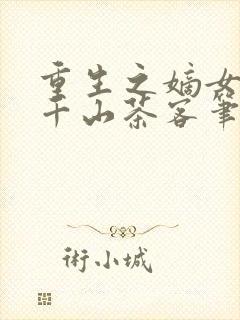 重生之嫡女
千山茶客筆
術小城